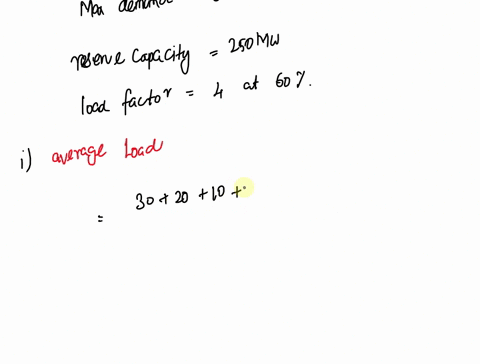 Max demand
reserve capacity = 250 MW
load factor = 4 at 60%.
i) average load
= 30 + 20 + 10 +